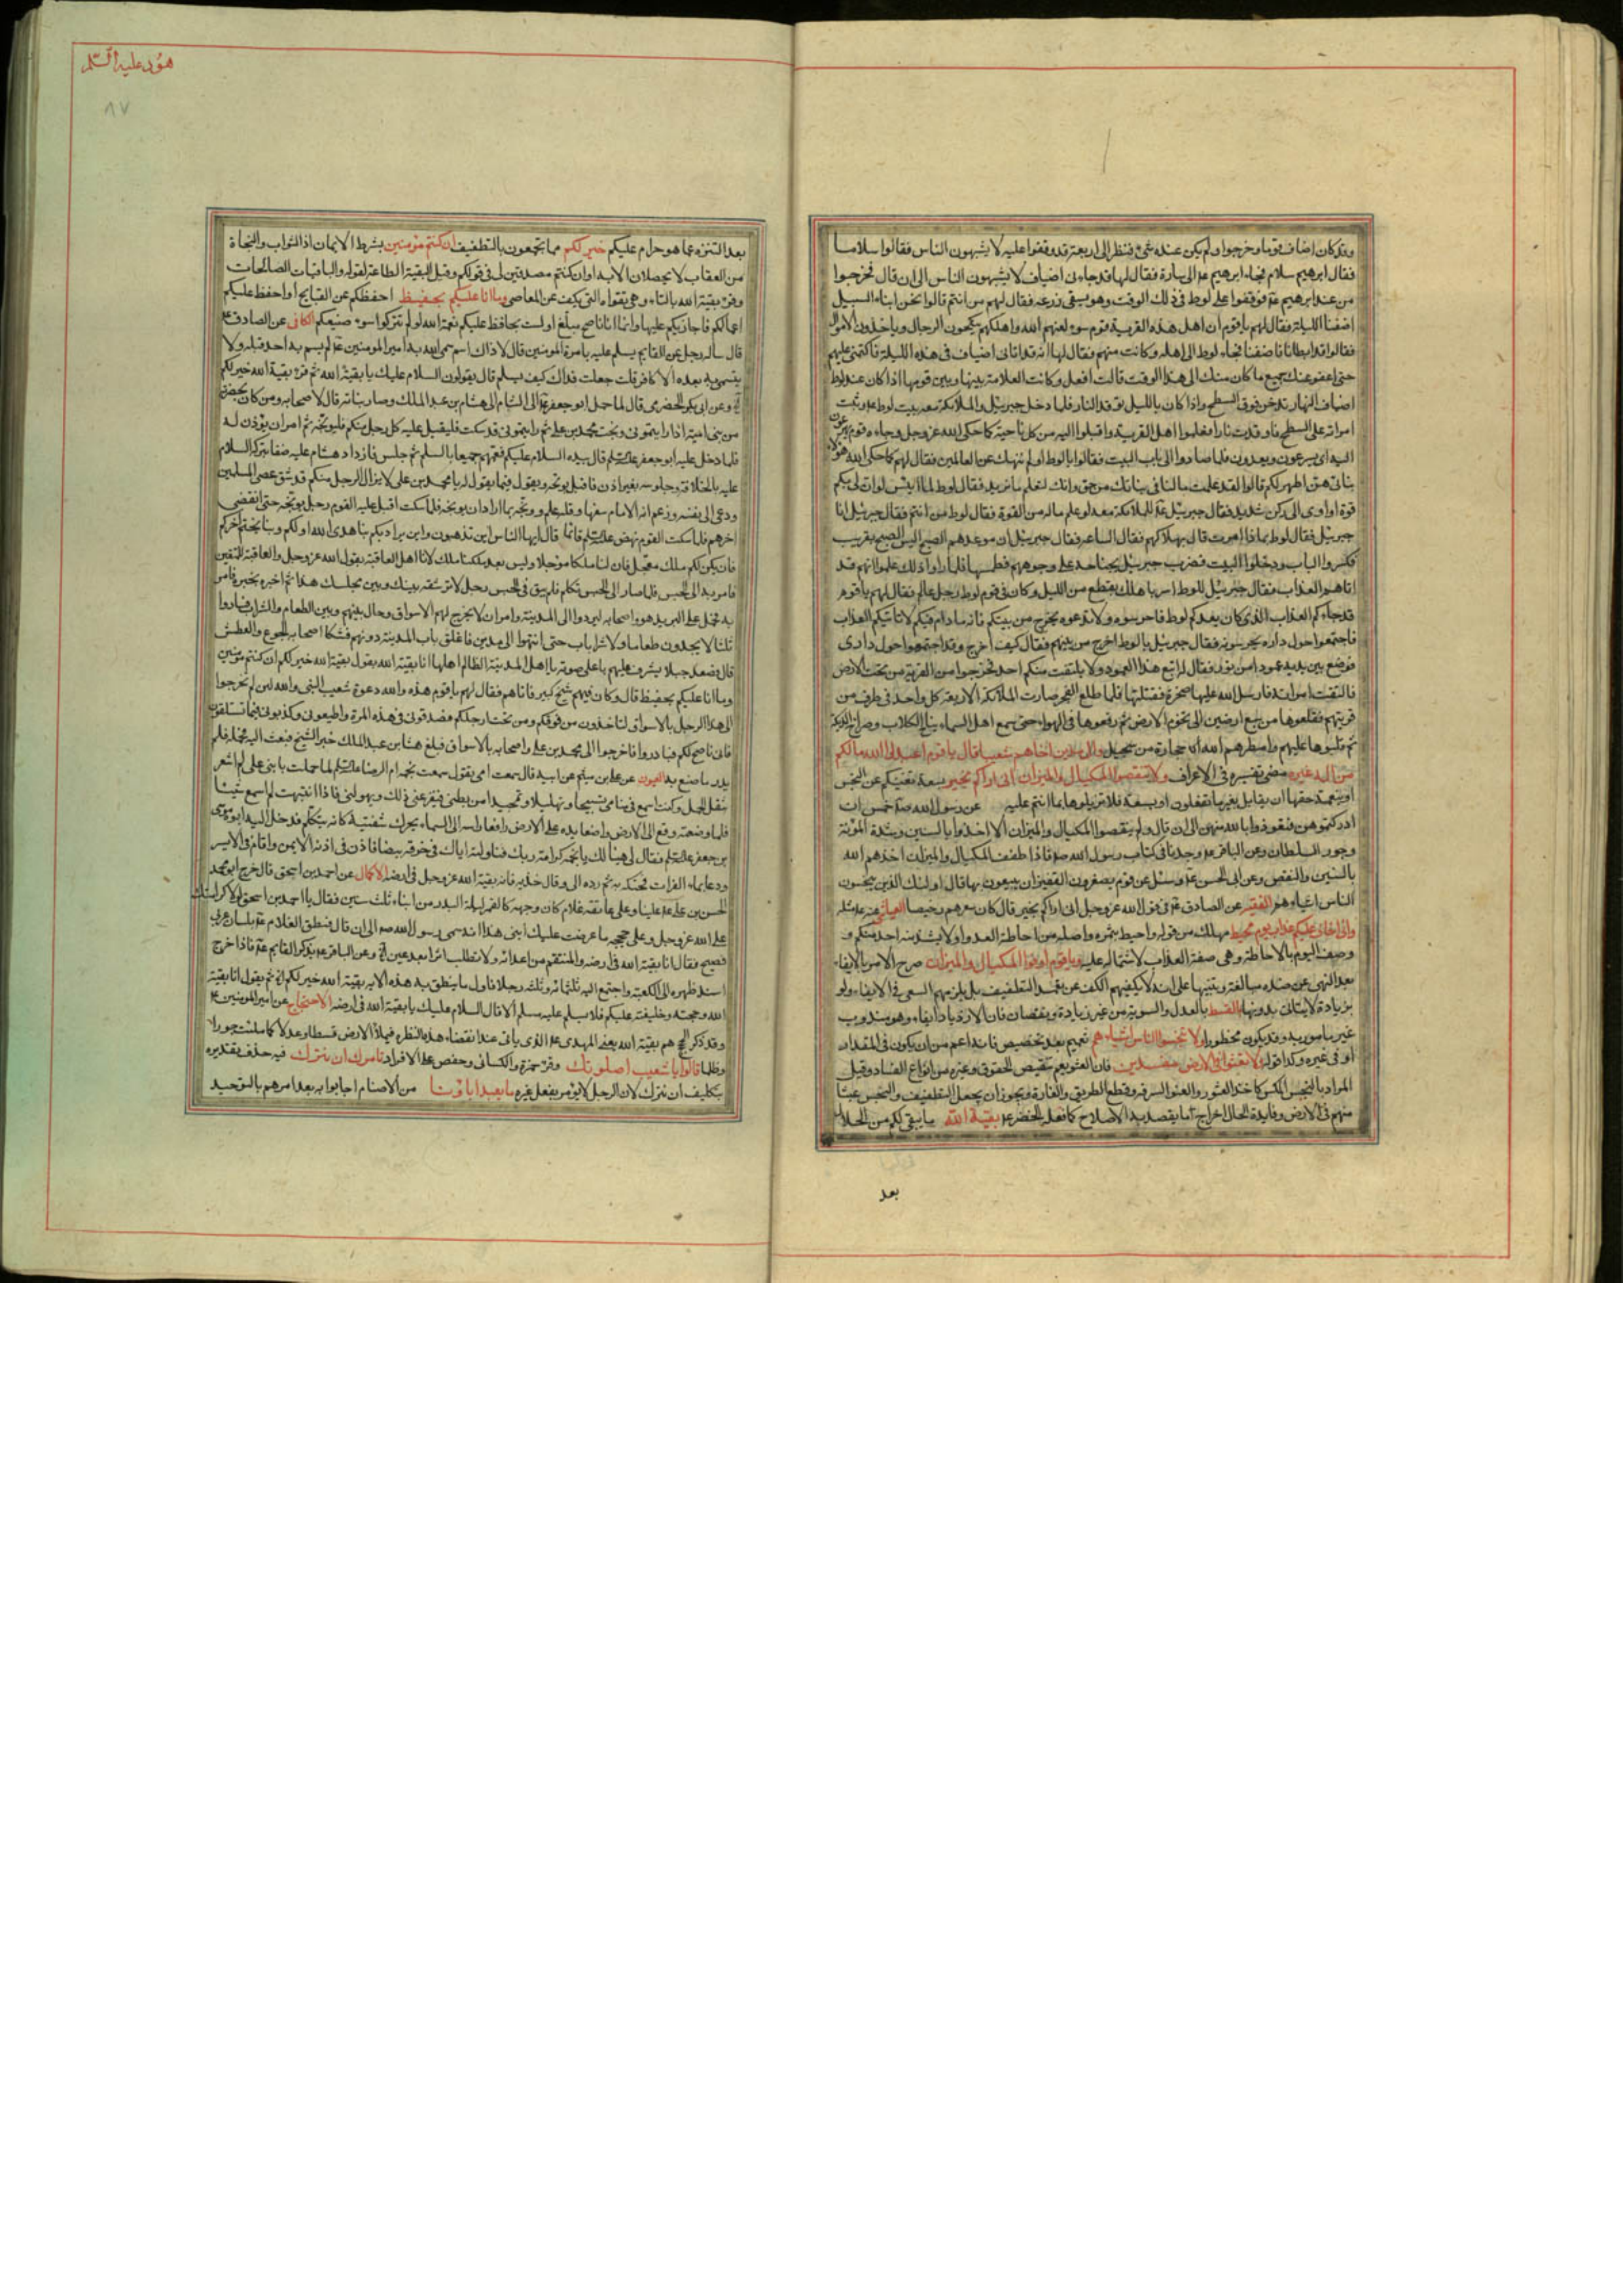 وقد كان اضاف قوما وخرجوا ولم يكن عنده شئ فنظر الى اربعة قد وقفوا عليه لا يشبهون الناس فقالوا سلاما
فقال ابرهيم سلام فجاء ابرهيم عم الى سارة فقال لها قد جاءنى اضياف لا يشبهون الناس الى ان قال فخرجوا
من عند ابرهيم عم فوقفوا على لوط فى ذلك الوقت وهو يسقى زرعه فقال لهم من انتم قالوا نحن ابناء السبيل
اضفنا الليلة فقال لهم ياقوم ان اهل هذه القرية قوم سوء لعنهم الله واهلكهم ينكحون الرجال وياخذون الاموال
فقالوا قد ابطانا فاضفنا فجاء لوط الى اهله وكانت منهم فقال لها انه قد اتانى اضياف فى هذه الليلة فاكتمى عليهم
حتى اعفو عنك جميع ما كان منك الى هذا الوقت قالت افعل وكانت العلامة بينها وبين قومها اذا كان عند لوط
اضياف بالنهار تدخن فوق السطح واذا كان بالليل توقد النار فلما دخل جبرئيل والملائكة معه بيت لوط عم وثبت
امراته على السطح فاوقدت نارا فعلموا اهل القرية واقبلوا اليه من كل ناحية كما حكى الله عز وجل وجاءه قومه يهرعون
اليه اى يسرعون ويعدون فلما صاروا الى باب البيت فقالوا يا لوط اولم ننهك عن العالمين فقال لهم كما حكى الله هؤلاء
بناتى هن اطهر لكم قالوا لقد علمت ما لنا فى بناتك من حق وانك لتعلم ما نريد فقال لوط لما ايس لو ان لى بكم
قوة او اوى الى ركن شديد فقال جبرئيل عم للملائكة معه لو علم ماله من القوة فقال لوط من انتم فقال جبرئيل انا
جبرئيل فقال لوط بماذا امرت قال بهلاكهم فقال الساعة فقال جبرئيل ان موعدهم الصبح اليس الصبح بقريب
فكسروا الباب ودخلوا البيت فضرب جبرئيل بجناحه على وجوههم فطمسها فلما راوا ذلك علموا انهم قد
اتاهم العذاب فقال جبرئيل للوط اسر باهلك بقطع من الليل وكان فى قوم لوط رجل عالم فقال لهم ياقوم
قد جاءكم العذاب الذى كان يعدكم لوط فاحرسوه ولا تدعوه يخرج من بيتكم فانه ما دام فيكم لا ياتيكم العذاب
فاجتمعوا حول داره يحرسونه فقال جبرئيل يا لوط اخرج من بينهم فقال كيف اخرج وقد اجتمعوا حول دارى
فوضع بين يديه عمودا من نور فقال له اتبع هذا العمود ولا يلتفت منكم احد فخرجوا من القرية من تحت الارض
فالتفتت امراته فارسل الله عليها صخرة فقتلتها فلما طلع الفجر صارت الملائكة الاربعة كل واحد فى طرف من
قريتهم فقلعوها من سبع ارضين الى تخوم الارض ثم رفعوها فى الهواء حتى سمع اهل السماء نباح الكلاب وصراخ الديكة
ثم قلبوها عليهم وامطرهم الله حجارة من سجيل والى مدين اخاهم شعيبا قال ياقوم اعبدوا الله مالكم
من اله غيره مضى تفسيره فى الاعراف ولا تنقصوا المكيال والميزان انى اريكم بخير بسعة تغنيكم عن البخس
او بنعمة حقها ان يقابل بغير ما تفعلون او بسعة فلا تزيلوها بما انتم عليه عن رسول الله صلى خمس ان
ادركتموهن فتعوذوا بالله منهن الى ان قال ولم ينقصوا المكيال والميزان الا اخذوا بالسنين وشدة المؤنة
وجور السلطان وعن الباقر عم وجدنا فى كتاب رسول الله صم فاذا طفف المكيال والميزان اخذهم الله
بالسنين والنقص وعن ابى الحسن عم وسئل عن قوم يصغرون القفيزان يبيعون بها قال اولئك الذين يبخسون
الناس اشياءهم الفقيه عن الصادق عم فى قول الله عز وجل انى اريكم بخير قال كان سعرهم رخيصا العياشى عنه عم مثله
وانى اخاف عليكم عذاب يوم محيط مهلك من قوله واحيط بثمره واصله من احاطة العدو او لا يشذ منه احد منكم و
وصف اليوم بالاحاطة وهى صفة العذاب لاشتماله عليه وياقوم اوفوا المكيال والميزان صرح الامر بالايفاء
بعد النهى عن ضده مبالغة وتنبيها على انه لا يكفيهم الكف عن تعمد التطفيف بل يلزمهم السعى فى الايفاء ولو
بزيادة لا يتاتى بدونها بالقسط بالعدل والسوية من غير زيادة ونقصان فان الازدياد ايفاء وهو مندوب
غير مامور به وقد يكون محظورا ولا تبخسوا الناس اشياءهم تعميم بعد تخصيص فانه اعم من ان يكون فى المقدار
او فى غيره وكذا قوله ولا تعثوا فى الارض مفسدين فان العثو يعم تنقيص الحقوق وغيره من انواع الفساد وقيل
المراد بالبخس المكس كاخذ العشور والعثو السرقة وقطع الطريق والغارة ويجوز ان يجعل التطفيف والبخس عيثا
منهم فى الارض وفايدة الحال اخراج ما يقصد به الاصلاح كما فعله الخضر عم بقية الله ما يبقى لكم من الحلال
بعد
هود عليه السلم
٨٧
بعد التنزه عما هو حرام عليكم خير لكم مما تجمعون بالتطفيف ان كنتم مؤمنين بشرط الايمان اذ الثواب والنجاة
من العقاب لا يحصلان الا به او ان كنتم مصدقين لى فى قولكم وقيل البقية الطاعة لقوله والباقيات الصالحات
وقرئ بقية الله بالتاء وهى تقواه التى يكف عن المعاصى وما انا عليكم بحفيظ احفظكم عن القبايح او احفظ عليكم
اعمالكم فاجازيكم عليها وانما انا ناصح مبلغ او لست بحافظ عليكم نعمة الله لو لم تتركوا سوء صنيعكم الكافى عن الصادق عم
قال ساله رجل عن القايم يسلم عليه بامرة المومنين قال لا ذاك اسم سمى الله به امير المومنين عم لم يسم به احد قبله ولا
يتسمى به بعده الا كافر قلت جعلت فداك كيف يسلم قال يقولون السلام عليك يا بقية الله ثم قرئ بقية الله خير لكم
وعن ابى بكر الحضرمى قال لما حمل ابو جعفر عم الى الشام الى هشام بن عبد الملك وصار ببابه قال لاصحابه ومن كان بحضرته
من بنى امية اذا رايتمونى وبخت محمد بن على ثم رايتمونى قد سكت فليقبل عليه كل رجل منكم فليوبخه ثم امر ان يؤذن له
فلما دخل عليه ابو جعفر عليه السلم قال بيده السلام عليكم فعمهم جميعا بالسلم ثم جلس فازداد هشام عليه حنقا بتركه السلام
عليه بالخلافة وجلوسه بغير اذن فاقبل يوبخه ويقول فيما يقول له يا محمد بن على لا يزال الرجل منكم قد شق عصى المسلمين
ودعى الى نفسه وزعم انه الامام سفها وقلة علم ووبخه بما اراد ان يوبخه فلما سكت اقبل عليه القوم رجل يوبخه حتى انقضى
اخرهم فلما سكت القوم نهض عليه السلم قائما قال ايها الناس اين تذهبون واين يراد بكم بنا هدى الله اولكم وبنا يختم اخركم
فان يكن لكم ملك معجل فان لنا ملكا مؤجلا وليس بعد ملكنا ملك لانا اهل العاقبة يقول الله عز وجل والعاقبة للمتقين
فامر به الى الحبس فلما صار الى الحبس تكلم فلم يبق فى الحبس رجل الا ترشفه
به فحمل على البريد هو واصحابه ليردوا الى المدينة وامر ان لا يخرج لهم الاسواق وحال بينهم وبين الطعام والشراب فساروا
ثلثا لا يجدون طعاما ولا شرابا حتى انتهوا الى مدين فاغلق باب المدينة دونهم فشكا اصحابه الجوع والعطش
قال فصعد جبلا يشرف عليهم باعلى صوته يا اهل المدينة الظالم اهلها انا بقية الله يقول بقية الله خير لكم ان كنتم مؤمنين
وما انا عليكم بحفيظ قال وكان فيهم شيخ كبير فاتاهم فقال لهم ياقوم هذه والله دعوة شعيب النبى والله لئن لم تخرجوا
الى هذا الرجل بالاسواق لتاخذون من فوقكم ومن تحت ارجلكم فصدقونى فى هذه المرة واطيعونى وكذبونى فيما تستانفون
فانى ناصح لكم فبادروا فاخرجوا الى محمد بن على واصحابه بالاسواق فبلغ هشام بن عبد الملك خبر الشيخ فبعث اليه فحمله فلم
يدر ما صنع به العيون عن على بن ميثم عن ابيه قال سمعت امى تقول سمعت نجمه ام الرضا عليه السلم لما حملت بابنى على لم اشعر
بثقل الحمل وكنت اسمع فى منامى تسبيحا وتهليلا وتمجيدا من بطنى فيفزعنى ذلك ويهولنى فاذا انتبهت لم اسمع شيئا
فلما وضعته وقع الى الارض واضعا يده على الارض رافعا راسه الى السماء يحرك شفتيه كانه يتكلم فدخل اليه ابوه موسى
بن جعفر عليه السلم فقال لى هنيئا لك يا نجمه كرامة ربك فناولته اياه فى خرقة بيضا فاذن فى اذنه الايمن واقام فى الايسر
ودعا بماء الفرات فحنكه به ثم رده الى وقال خذيه فانه بقية الله عز وجل فى ارضه الاكمال عن احمد بن اسحق قال خرج ابو محمد
الحسن بن على عم علينا وعلى عاتقه غلام كان وجهه كالقمر ليلة البدر من ابناء ثلث سنين فقال يا احمد بن اسحق لولا كرامتك
على الله عز وجل وعلى حججه ما عرضت عليك ابنى هذا انه سمى رسول الله صم الى ان قال فنطق الغلام عم بلسان عربى
فصيح فقال انا بقية الله فى ارضه والمنتقم من اعدائه ولا تطلب اثرا بعد عين وعن الباقر عم يذكر القايم عم فاذا خرج
اسند ظهره الى الكعبة واجتمع اليه ثلثمائة وثلثة رجلا فاول ما ينطق به هذه الاية بقية الله خير لكم ثم يقول انا بقية
الله وحجته وخليفته عليكم فلا يسلم عليه مسلم الا قال السلام عليك يا بقية الله فى ارضه الاحتجاج عن امير المومنين عم
وقد ذكر الحجج هم بقية الله يعنى المهدى عم الذى ياتى عند انقضاء هذه النظرة فيملأ الارض قسطا وعدلا كما ملئت جورا
وظلما قالوا يا شعيب اصلوتك وقرئ حمزة والكسائى وحفص على الافراد تامرك ان نترك فيه حذف تقديره
بتكليف ان نترك لان الرجل لا يؤمر بفعل غيره ما يعبد اباؤنا من الاصنام اجابوا به بعد امرهم بالتوحيد